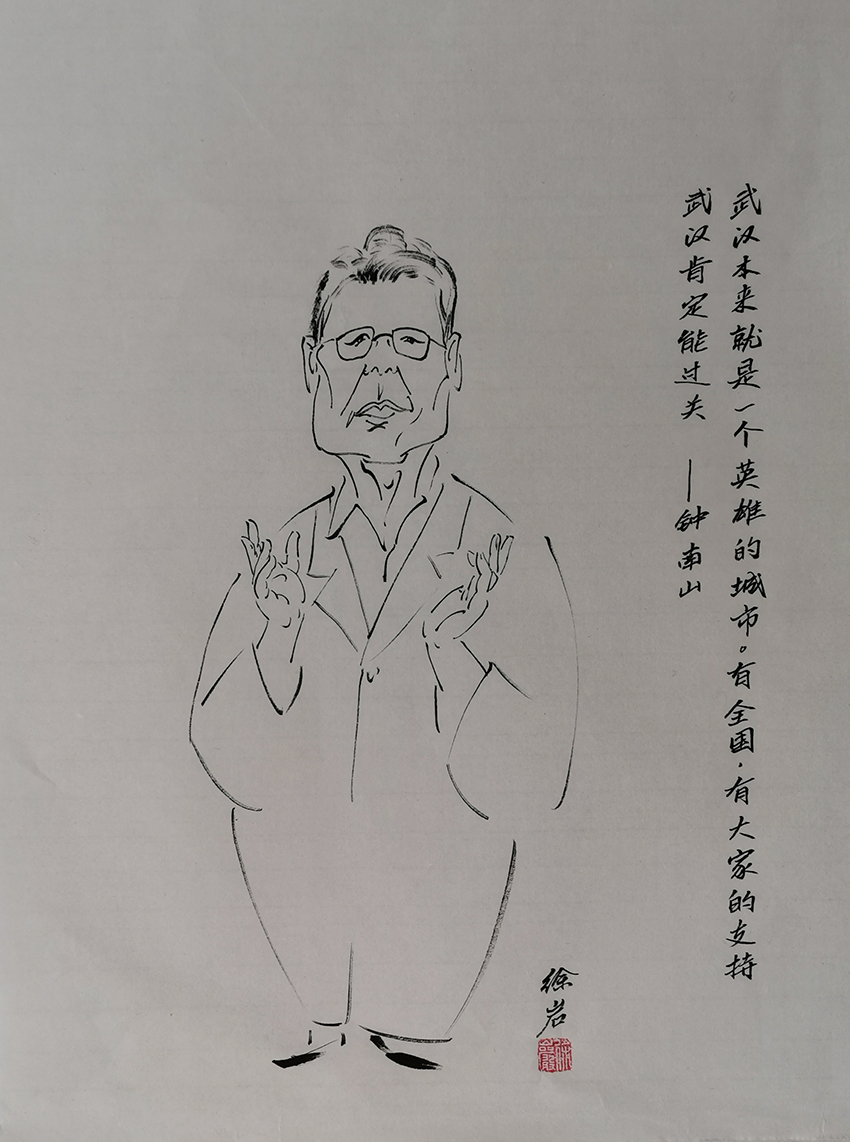 武汉本来就是一个英雄的城市。有全国，有大家的支持
武汉肯定能过关 —钟南山
徐岩